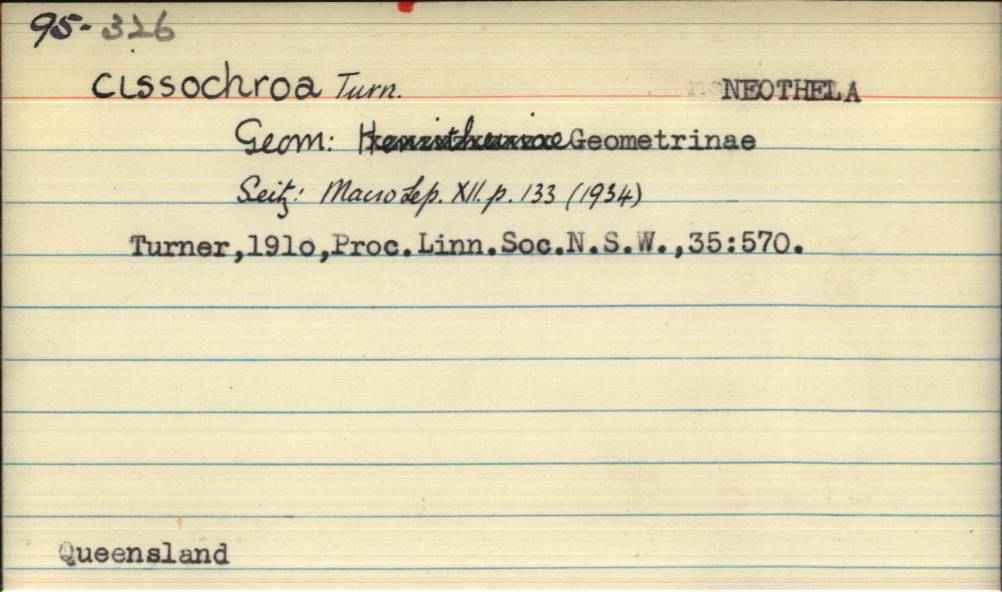 95-326
cissochroa Turn. NEOTHELA
Geom: Hemitheinae Geometrinae
Seitz: MacroLep. XII. p. 133 (1934)
Turner,191o,Proc.Linn.Soc.N.S.W.,35:570.
Queensland